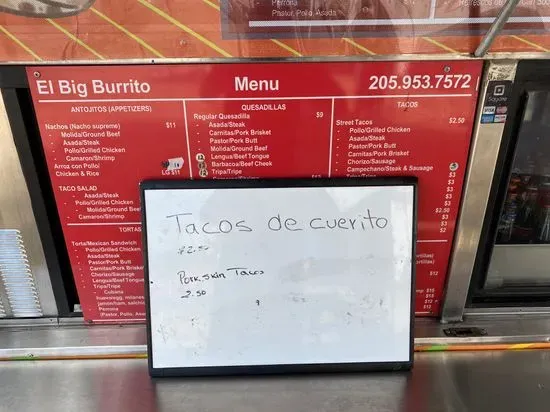 El Big Burrito
Menu
205.953.7572
ANTOJITOS (APPETIZERS)
Nachos (Nacho supreme) $11
Molida/Ground Beef
- Asada/Steak
- Pollo/Grilled Chicken
- Camaron/Shrimp
Arroz con Pollo/
Chicken & Rice
LG $11
TACO SALAD
- Asada/Steak
- Pollo/Grilled Chicken
- Molida/Ground Beef
- Camaron/Shrimp
TORTAS
Torta/Mexican Sandwich
- Pollo/Grilled Chicken
- Asada/Steak
- Pastor/Pork Butt
- Carnitas/Pork Brisket
- Chorizo/Sausage
- Lengua/Beef Tongue
- Tripa/Tripe
- Cubana
- Pernona
(Pastor, Pollo, Asada)
QUESADILLAS
Regular Quesadilla $9
- Asada/Steak
- Carnitas/Pork Brisket
- Pastor/Pork Butt
- Molida/Ground Beef
- Lengua/Beef Tongue
- Barbacoa/Beef Cheek
- Tripa/Tripe
TACOS
Street Tacos $2.50
- Pollo/Grilled Chicken
- Asada/Steak
- Pastor/Pork Butt
- Carnitas/Pork Brisket
- Chorizo/Sausage
- Campechano/Steak & Sausage
$3
$3
$3
$3
$2.50
$3
$3
Tacos de cuerito
$2.50
Pork skin Tacos
2.50
Pastor, Pollo, Asada
Square
VISA
$12
$15
$12